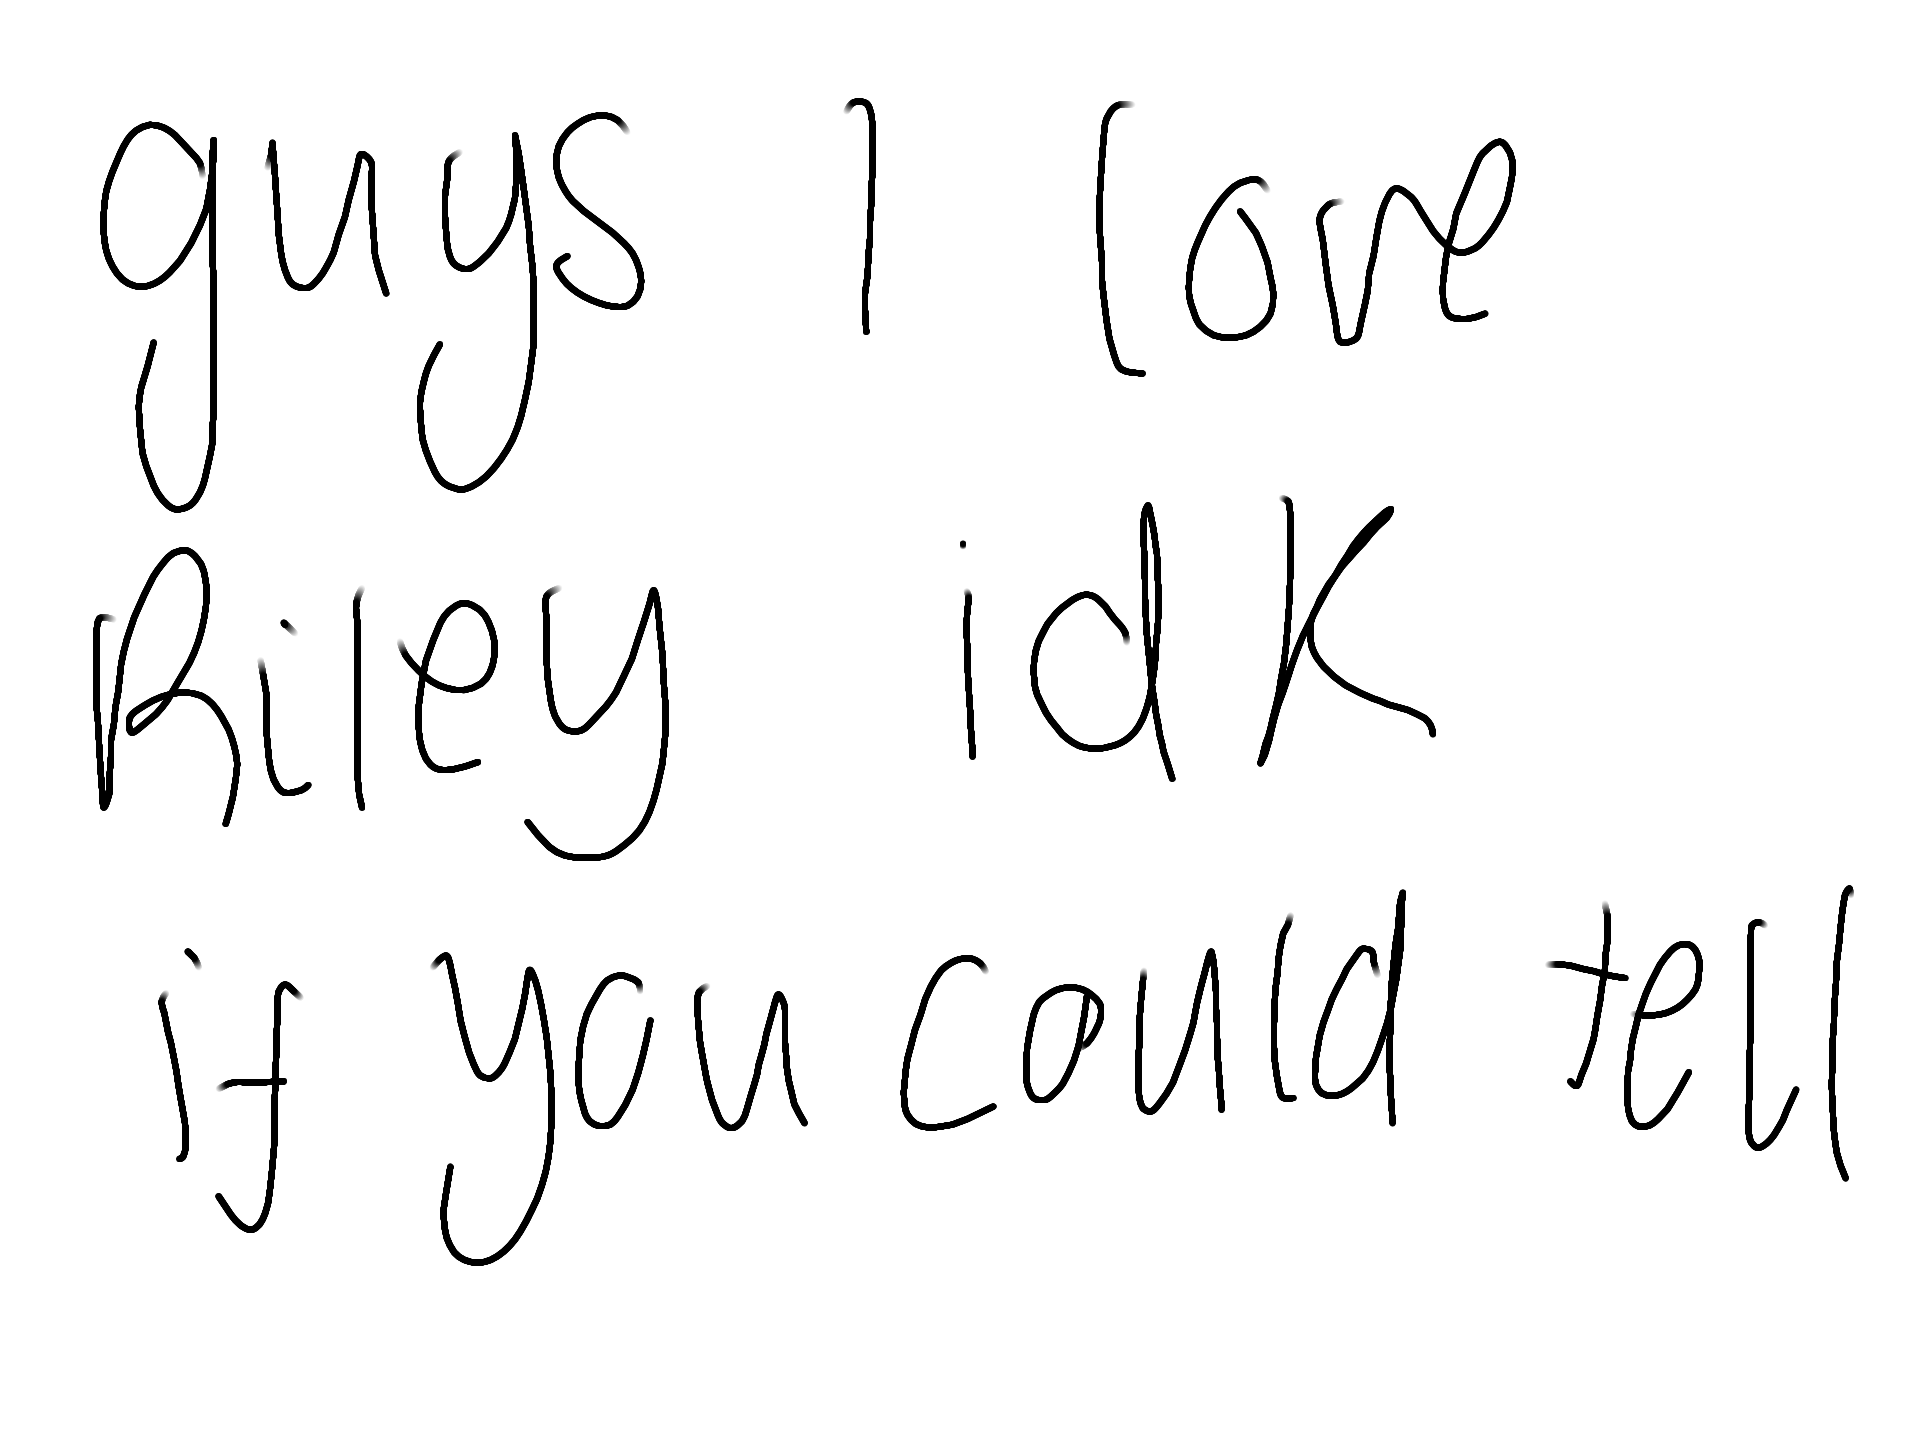 guys I love
Riley idk
if you could tell